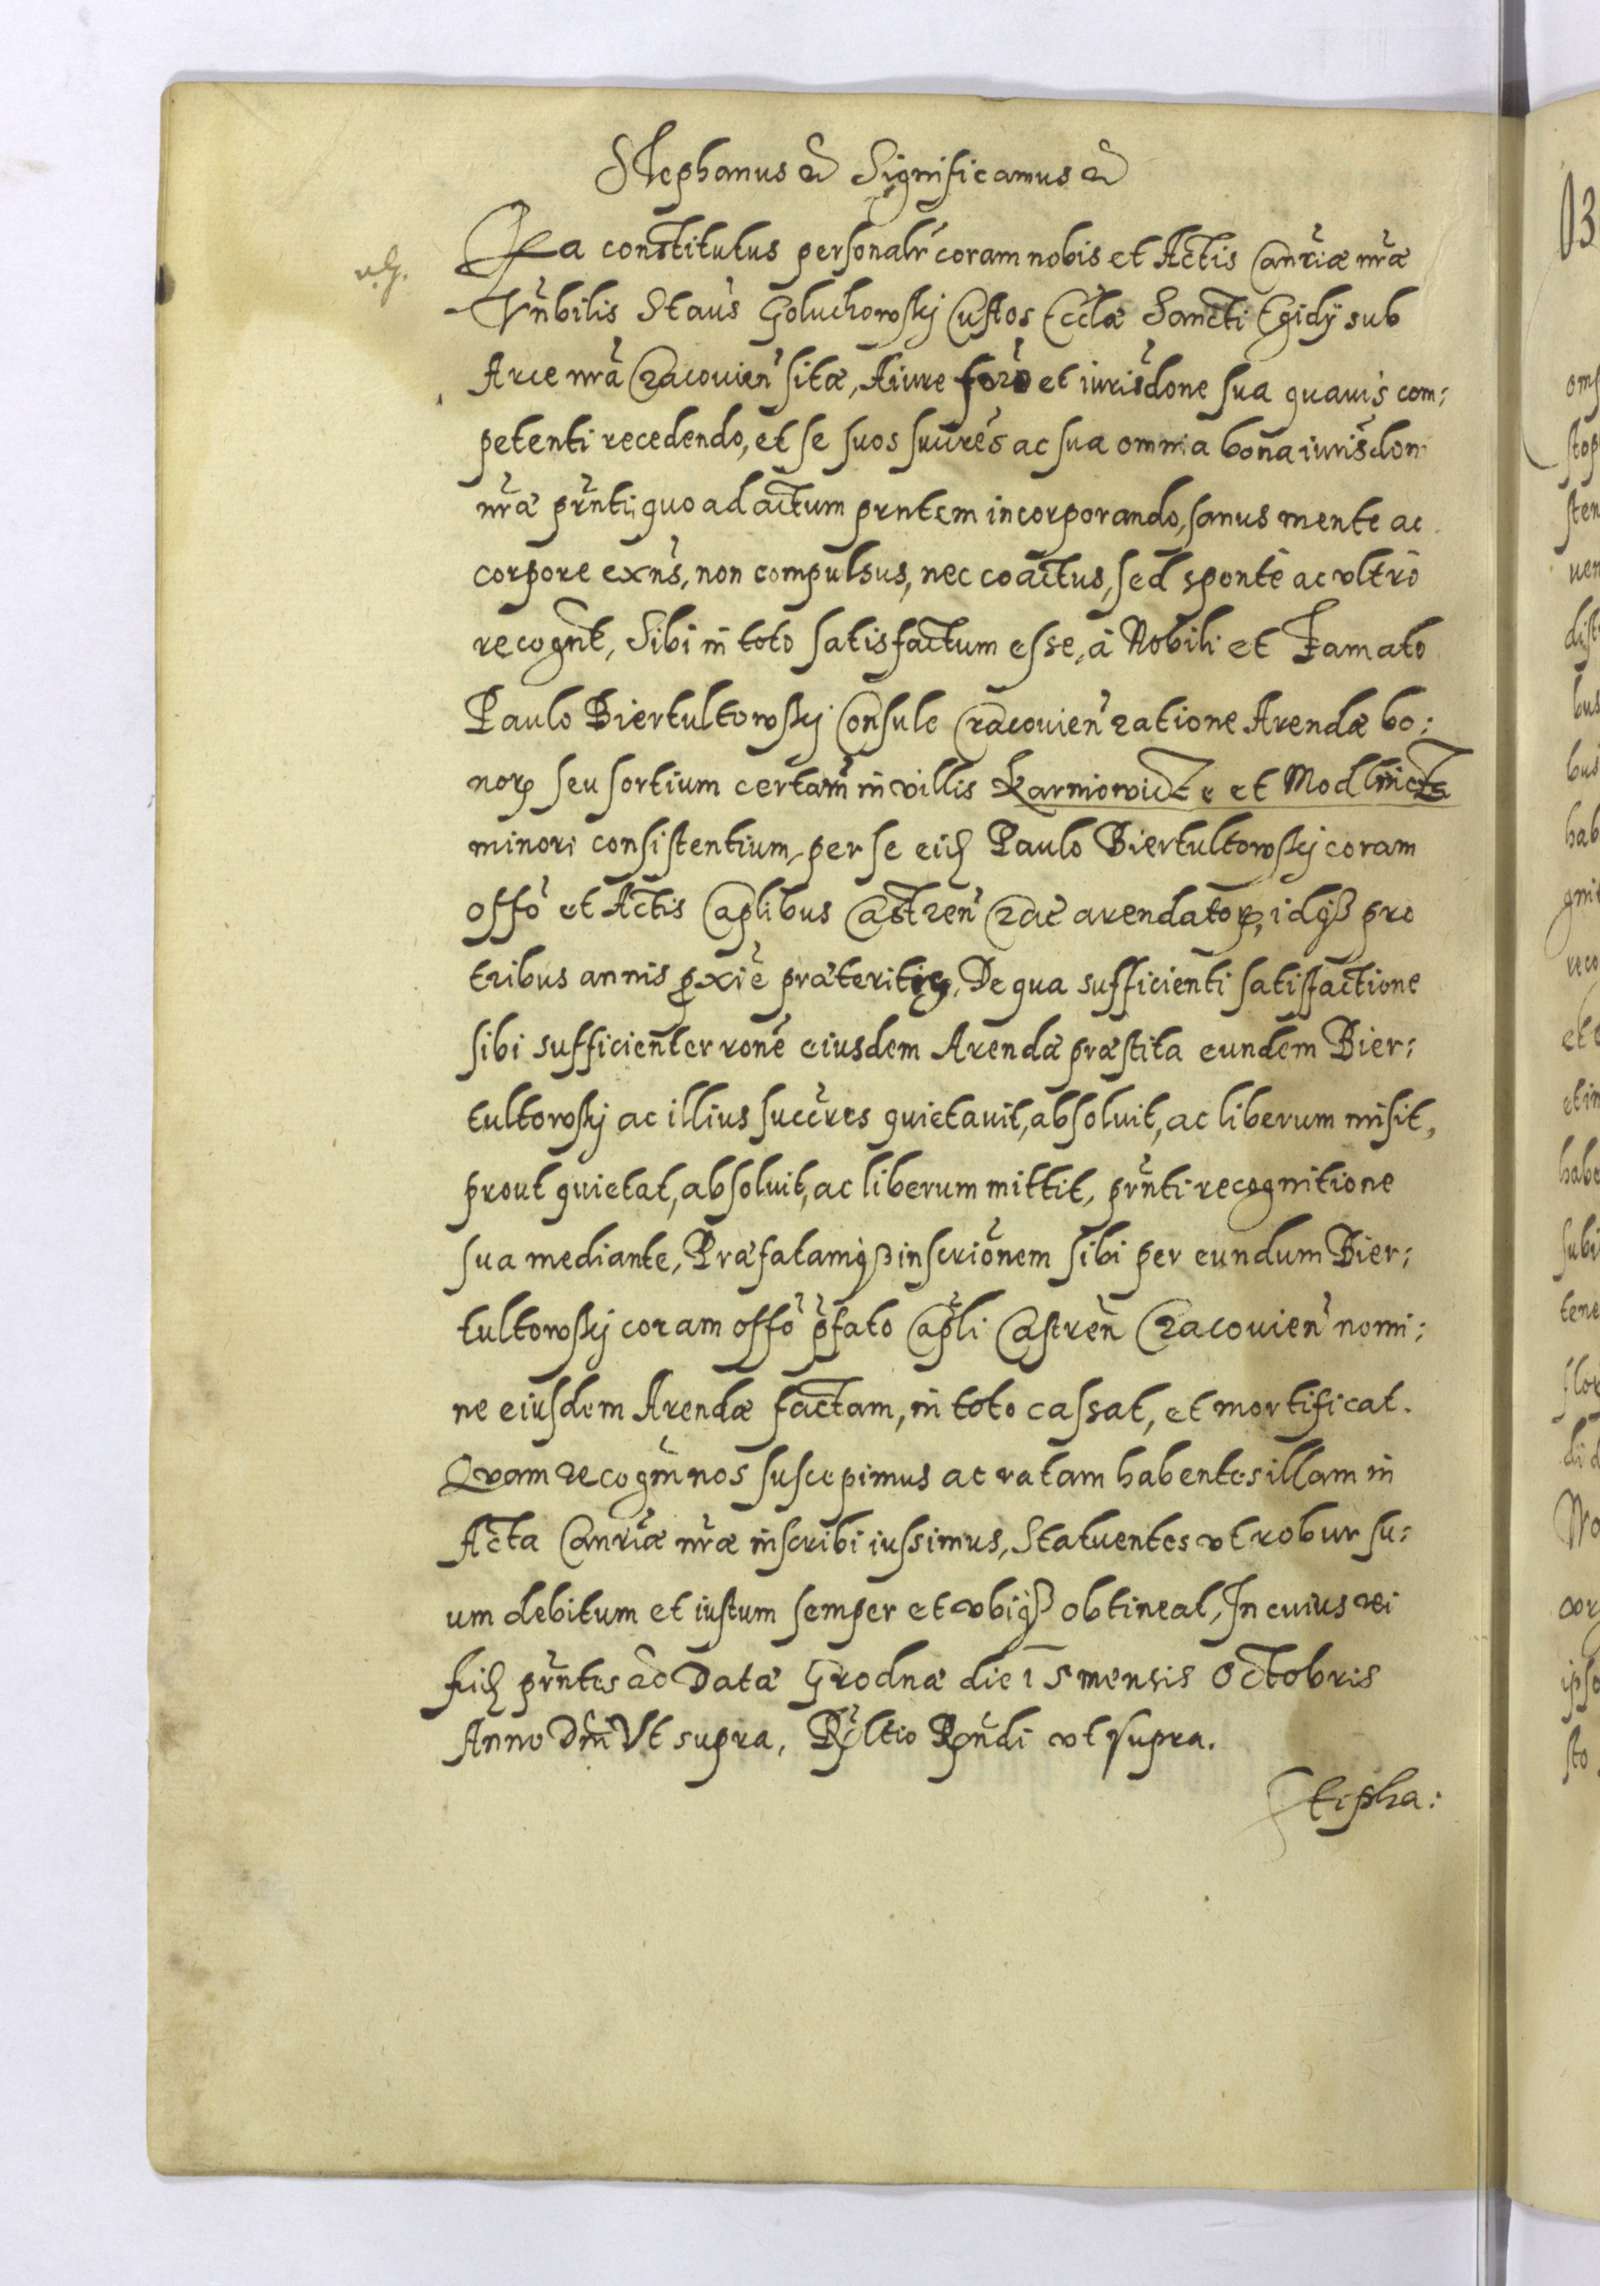 Stephanus &c Significamus &c
Qia constitutus personalr coram nobis et Actis Canriæ nræ
Vnbilis Staus Goluchowskj Custos Ecclæ Sancti Egidÿ sub
Arce nra Cracouien sitæ, A iure foro et iurisdone sua quauis com:
petenti recedendo, et se suos succres ac sua omnia bona iurisdon
nræ prnti quo ad actum prntem incorporando, sanus mente ac
corpore exns, non compulsus, nec coactus, sed sponte ac vltro
recognt, Sibi in toto satisfactum esse, a Nobili et Famato
Paulo Biertultowskj Consule Cracouien ratione Arendæ bo:
norum seu sortium certam in villis Karniowicze et Modlnicza
minori consistentium, per se eid Paulo Biertultowskj coram
offo et Actis Caplibus Castren Crac arendatorum, idque pro
tribus annis proxie præteritis, De qua sufficienti satisfactione
sibi sufficienter rone eiusdem Arendæ præstita eundem Bier:
tultowskj ac illius succres quietauit, absoluit, ac liberum misit,
prout quietat, absoluit, ac liberum mittit, prnti recognitione
sua mediante, Præfatamque inscrionem sibi per eundum Bier:
tultowskj coram offo pfato Capli Castren Cracouien nomi:
ne eiusdem Arendæ factam, in toto cassat, et mortificat.
Quam recogm nos suscepimus ac ratam habentes illam in
Acta Canriæ nræ inscribi iussimus, Statuentes vt robur su:
um debitum et iustum semper et vbique obtineat, In cuius rei
fid prntes &c Datæ Grodnæ die 15 mensis Octobris
Anno Dni Vt supra, Rltio Rndi vt supra.
Stepha: